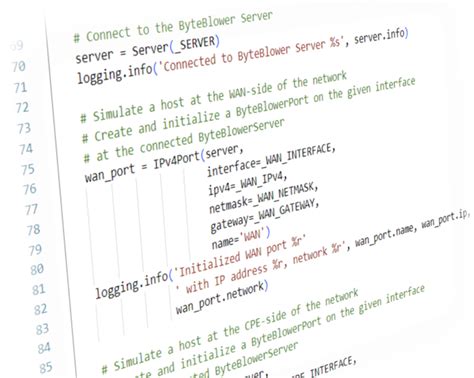 69 # Connect to the ByteBlower Server
70 server = Server(_SERVER)
71 logging.info('Connected to ByteBlower Server %s', server.info)
72
73 # Simulate a host at the WAN-side of the network
74 # Create and initialize a ByteBlowerPort on the given interface
75 # at the connected ByteBlowerServer
76 wan_port = IPv4Port(server,
77 interface=_WAN_INTERFACE,
78 ipv4=_WAN_IPv4,
79 netmask=_WAN_NETMASK,
80 gateway=_WAN_GATEWAY,
81 name='WAN')
82 logging.info('Initialized WAN port %r'
83 ' with IP address %r, network %r', wan_port.name, wan_port.ip,
84 wan_port.network)
85
# Simulate a host at the CPE-side of the network
and initialize a ByteBlowerPort on the given interface
connected ByteBlowerServer
INTERFACE,